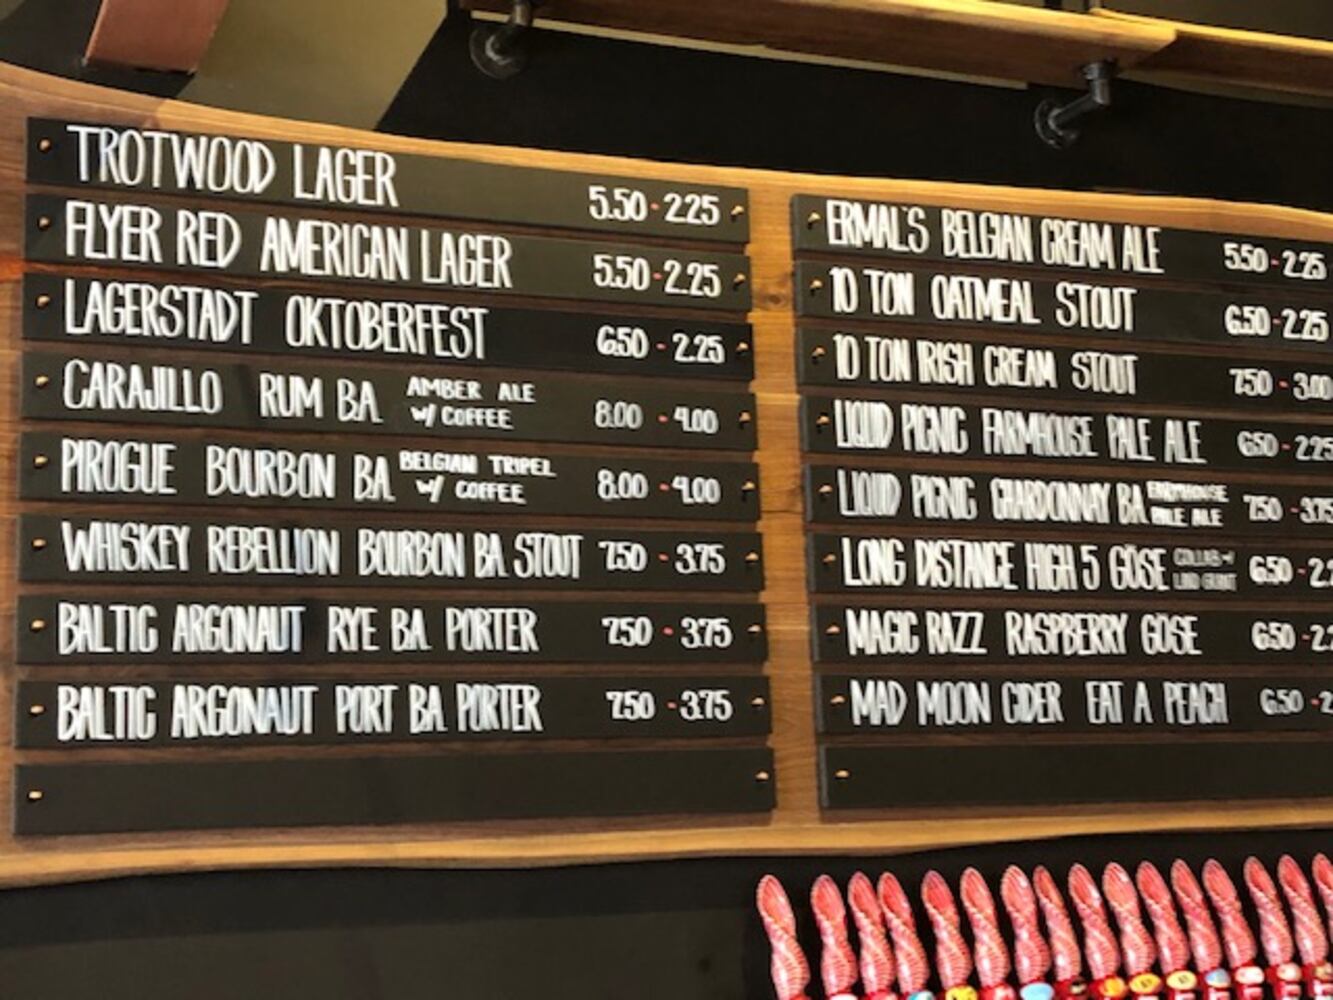 TROTWOOD LAGER 5.50 - 2.25
FLYER RED AMERICAN LAGER 5.50 - 2.25
LAGERSTADT OKTOBERFEST 6.50 - 2.25
CARAJILLO RUM BA AMBER ALE W/ COFFEE 8.00 - 4.00
PIROGUE BOURBON BA BELGIAN TRIPEL W/ COFFEE 8.00 - 4.00
WHISKEY REBELLION BOURBON BA STOUT 7.50 - 3.75
BALTIC ARGONAUT RYE BA PORTER 7.50 - 3.75
BALTIC ARGONAUT PORT BA PORTER 7.50 - 3.75
ERMAL'S BELGIAN CREAM ALE 5.50 - 2.25
10 TON OATMEAL STOUT 6.50 - 2.25
10 TON IRISH CREAM STOUT 7.50 - 3.00
LIQUID PICNIC FARMHOUSE PALE ALE 6.50 - 2.25
LIQUID PICNIC CHARDONNAY BA FARMHOUSE PALE ALE 7.50 - 3.75
LONG DISTANCE HIGH 5 GÖSE COLLAB W/ LAND GRANT 6.50 - 2.2
MAGIC RAZZ RASPBERRY GOSE 6.50 - 2.2
MAD MOON CIDER EAT A PEACH 6.50 - 2